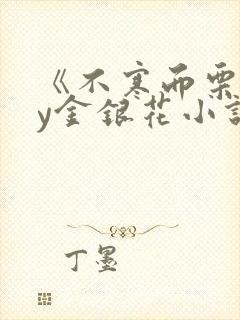 《不寒而栗
y金银花小说
丁墨